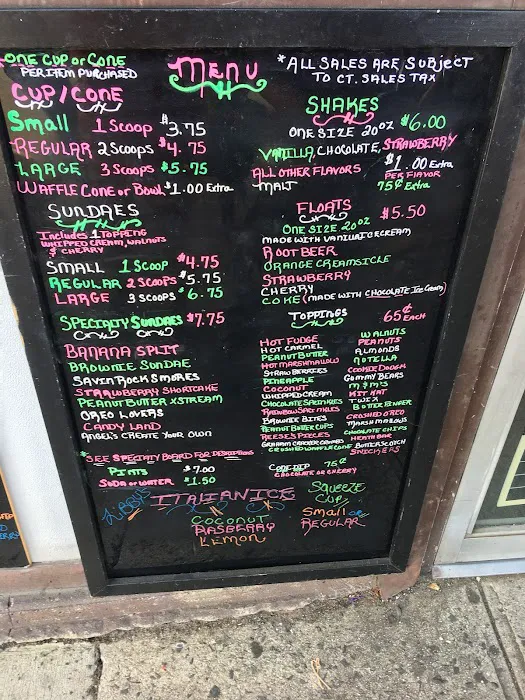 ONE CUP or CONE
PER ITEM PURCHASED
MENU
*ALL SALES ARE SUBJECT
TO CT. SALES TAX
CUP/CONE
Small 1 Scoop $3.75
REGULAR 2 Scoops $4.75
LARGE 3 Scoops $5.75
WAFFLE CONE or BOWL $1.00 Extra
SUNDAES
Includes 1 TOPPING
WHIPPED CREAM, WALNUTS
& CHERRY
SMALL 1 SCOOP $4.75
REGULAR 2 SCOOPS $5.75
LARGE 3 SCOOPS $6.75
SPECIALTY SUNDAES $7.75
BANANA SPLIT
BROWNIE SUNDAE
SAVIN ROCK SMORES
STRAWBERRY SHORTCAKE
PEANUT BUTTER XSTREAM
OREO LOVERS
CANDY LAND
ANGEL'S CREATE YOUR OWN
*SEE SPECIALTY BOARD FOR DESCRIPTIONS
PINTS $7.00
SODA OR WATER $1.50
SHAKES
ONE SIZE 20OZ $6.00
VANILLA, CHOCOLATE, STRAWBERRY
ALL OTHER FLAVORS $1.00 Extra
PER FLAVOR
MALT 75¢ Extra
FLOATS $5.50
ONE SIZE 20OZ
MADE WITH VANILLA ICE CREAM
ROOT BEER
ORANGE CREAMSICLE
STRAWBERRY
CHERRY
COKE (MADE WITH CHOCOLATE Ice Cream)
TOPPINGS 65¢ EACH
HOT FUDGE
HOT CARMEL
PEANUT BUTTER
HOT MARSHMALLOW
STRAWBERRIES
PINEAPPLE
COCONUT
WHIPPED CREAM
CHOCOLATE SPRINKLES
RAINBOW SPRINKLES
BROWNIE BITES
PEANUT BUTTER CUPS
REESES PIECES
GRAHAM CRACKER CRUMBS
CRUSHED WAFFLE CONE
WALNUTS
PEANUTS
ALMONDS
NUTELLA
COOKIE DOUGH
GUMMY BEARS
M&M'S
KIT KAT
TWIX
BUTTER FINGER
CRUSHED OREO
MARSHMALLOWS
CHOCOLATE CHIPS
HEATH BAR
BUTTERSCOTCH
SNICKERS
CONE DIP 75¢
CHOCOLATE OR CHERRY
LIBBY'S
ITALIAN ICE
COCONUT
RASBERRY
LEMON
SQUEEZE
CUP
Small or
REGULAR